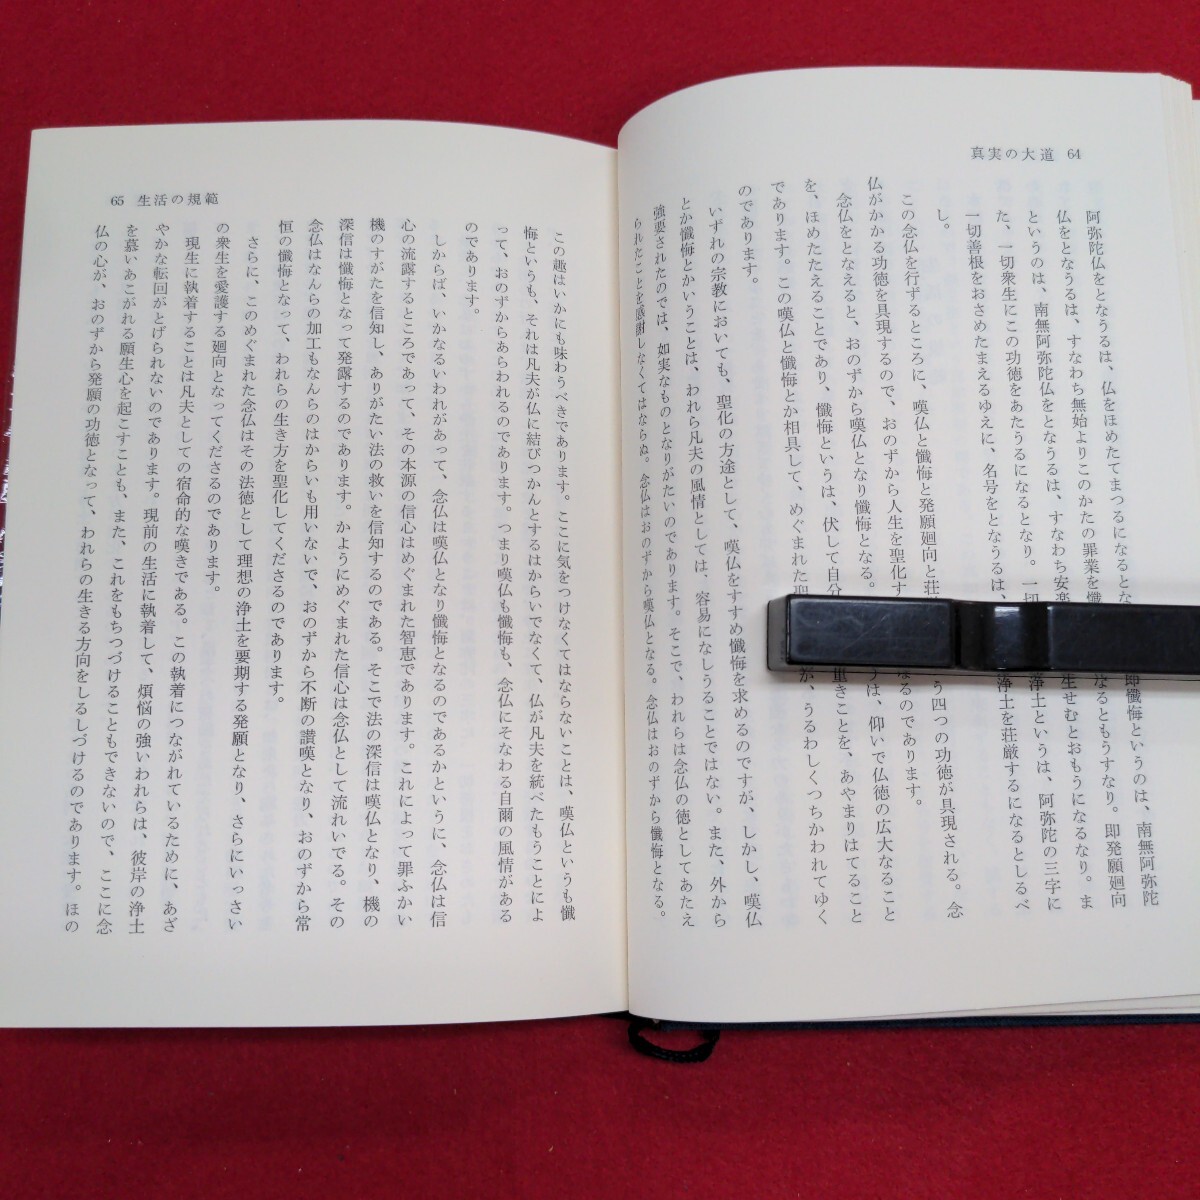 真実の大道 64
阿弥陀仏をとなうるは、仏をほめたてまつるになるとな 即懺悔というのは、南無阿弥陀
仏をとなうるは、すなわち無始よりこのかたの罪業を懺 なるともうすなり。即発願廻向
というのは、南無阿弥陀仏をとなうるは、すなわち安楽 生せむとおもうになるなり。ま
た、一切衆生にこの功徳をあたうるになるとなり。一切 浄土というは、阿弥陀の三字に
一切善根をおさめたまえるゆえに、名号をとなうるは、 浄土を荘厳するになるとしるべ
し。
この念仏を行ずるところに、嘆仏と懺悔と発願廻向と荘 う四つの功徳が具現される。念
仏がかかる功徳を具現するので、おのずから人生を聖化す なるのであります。
念仏をとなえると、おのずから嘆仏となり懺悔となる。 うは、仰いで仏徳の広大なること
を、ほめたたえることであり、懺悔というは、伏して自分 重きことを、あやまりはてること
であります。この嘆仏と懺悔とか相具して、めぐまれた聖 が、うるわしくつちかわれてゆく
のであります。
いずれの宗教においても、聖化の方途として、嘆仏をすすめ懺悔を求めるのですが、しかし、嘆仏
とか懺悔とかいうことは、われら凡夫の風情としては、容易になしうることではない。また、外から
強要されたのでは、如実なものとなりがたいのであります。そこで、われらは念仏の徳としてあたえ
られたことを感謝しなくてはならぬ。念仏はおのずから嘆仏となる。念仏はおのずから懺悔となる。
65 生活の規範
この趣はいかにも味わうべきであります。ここに気をつけなくてはならないことは、嘆仏というも懺
悔というも、それは凡夫が仏に結びつかんとするはからいでなくて、仏が凡夫を統べたもうことによ
って、おのずからあらわれるのであります。つまり嘆仏も懺悔も、念仏にそなわる自爾の風情がある
のであります。
しからば、いかなるいわれがあって、念仏は嘆仏となり懺悔となるのであるかというに、念仏は信
心の流露するところであって、その本源の信心はめぐまれた智恵であります。これによって罪ふかい
機のすがたを信知し、ありがたい法の救いを信知するのである。そこで法の深信は嘆仏となり、機の
深信は懺悔となって発露するのであります。かようにめぐまれた信心は念仏として流れいでる。その
念仏はなんらの加工もなんらのはからいも用いないで、おのずから不断の讃嘆となり、おのずから常
恒の懺悔となって、われらの生き方を聖化してくださるのであります。
さらに、このめぐまれた念仏はその法徳として理想の浄土を要期する発願となり、さらにいっさい
の衆生を愛護する廻向となってくださるのであります。
現生に執着することは凡夫としての宿命的な嘆きである。この執着につながれているために、あざ
やかな転回がとげられないのであります。現前の生活に執着して、煩悩の強いわれらは、彼岸の浄土
を慕いあこがれる願生心を起こすことも、また、これをもちつづけることもできないので、ここに念
仏の心が、おのずから発願の功徳となって、われらの生きる方向をしるしづけるのであります。ほの